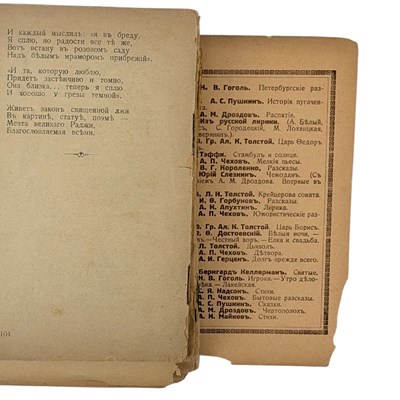 И каждый мыслилъ: «я въ бреду,
Я сплю, но радости все тѣ же,
Вотъ встану въ розовомъ саду
Надъ бѣлымъ мраморомъ прибрежій».
«И та, которую люблю,
Придетъ застѣнчиво и томно,
Она близка... теперь я сплю
И хорошо у грезы темной».
Живетъ законъ священной лжи
Въ картинѣ, статуѣ, поэмѣ —
Мечта великаго Раджи,
Благословляемая всѣми.
104
Н. В. Гоголь. Петербургскіе раз-
А. С. Пушкинъ. Исторія пугачев-
А. М. Дроздовъ. Распятіе.
Изъ русской лирики. (А. Бѣлый,
С. Городецкій, М. Лохвицкая,
Гр. Ал. К. Толстой. Царь Ѳедоръ
Тэффи. Стамбулъ и солнце.
А. П. Чеховъ. Мелкія пьесы.
В. Г. Короленко, Разсказы.
Юрій Слезкинъ. Чемоданъ. (Съ
А. М. Дроздова. Впервые въ
Л. Н. Толстой. Крейцерова соната.
И. Ѳ. Горбуновъ, Разсказы.
А. Н. Апухтинъ. Лирика.
А. П. Чеховъ. Юмористическіе раз-
Гр. Ал. К. Толстой. Царь Борисъ.
Ѳ. Достоевскій. Бѣлыя ночи, —
Честный воръ. — Елка и свадьба.
Толстой. Дьяволъ.
А. П. Чеховъ. Дѣтвора.
А. И. Герценъ. Долгъ прежде всего.
Бернгардъ Келлерманъ. Святые.
Н. В. Гоголь. Игроки.—Утро дѣло-
—Лакейская.
С. Я. Надсонъ. Стихи.
А. П. Чеховъ. Бытовые разсказы.
А. С. Пушкинъ. Сказки.
А. М. Дроздовъ. Чертополохъ.
А. Н. Майковъ. Стихи.